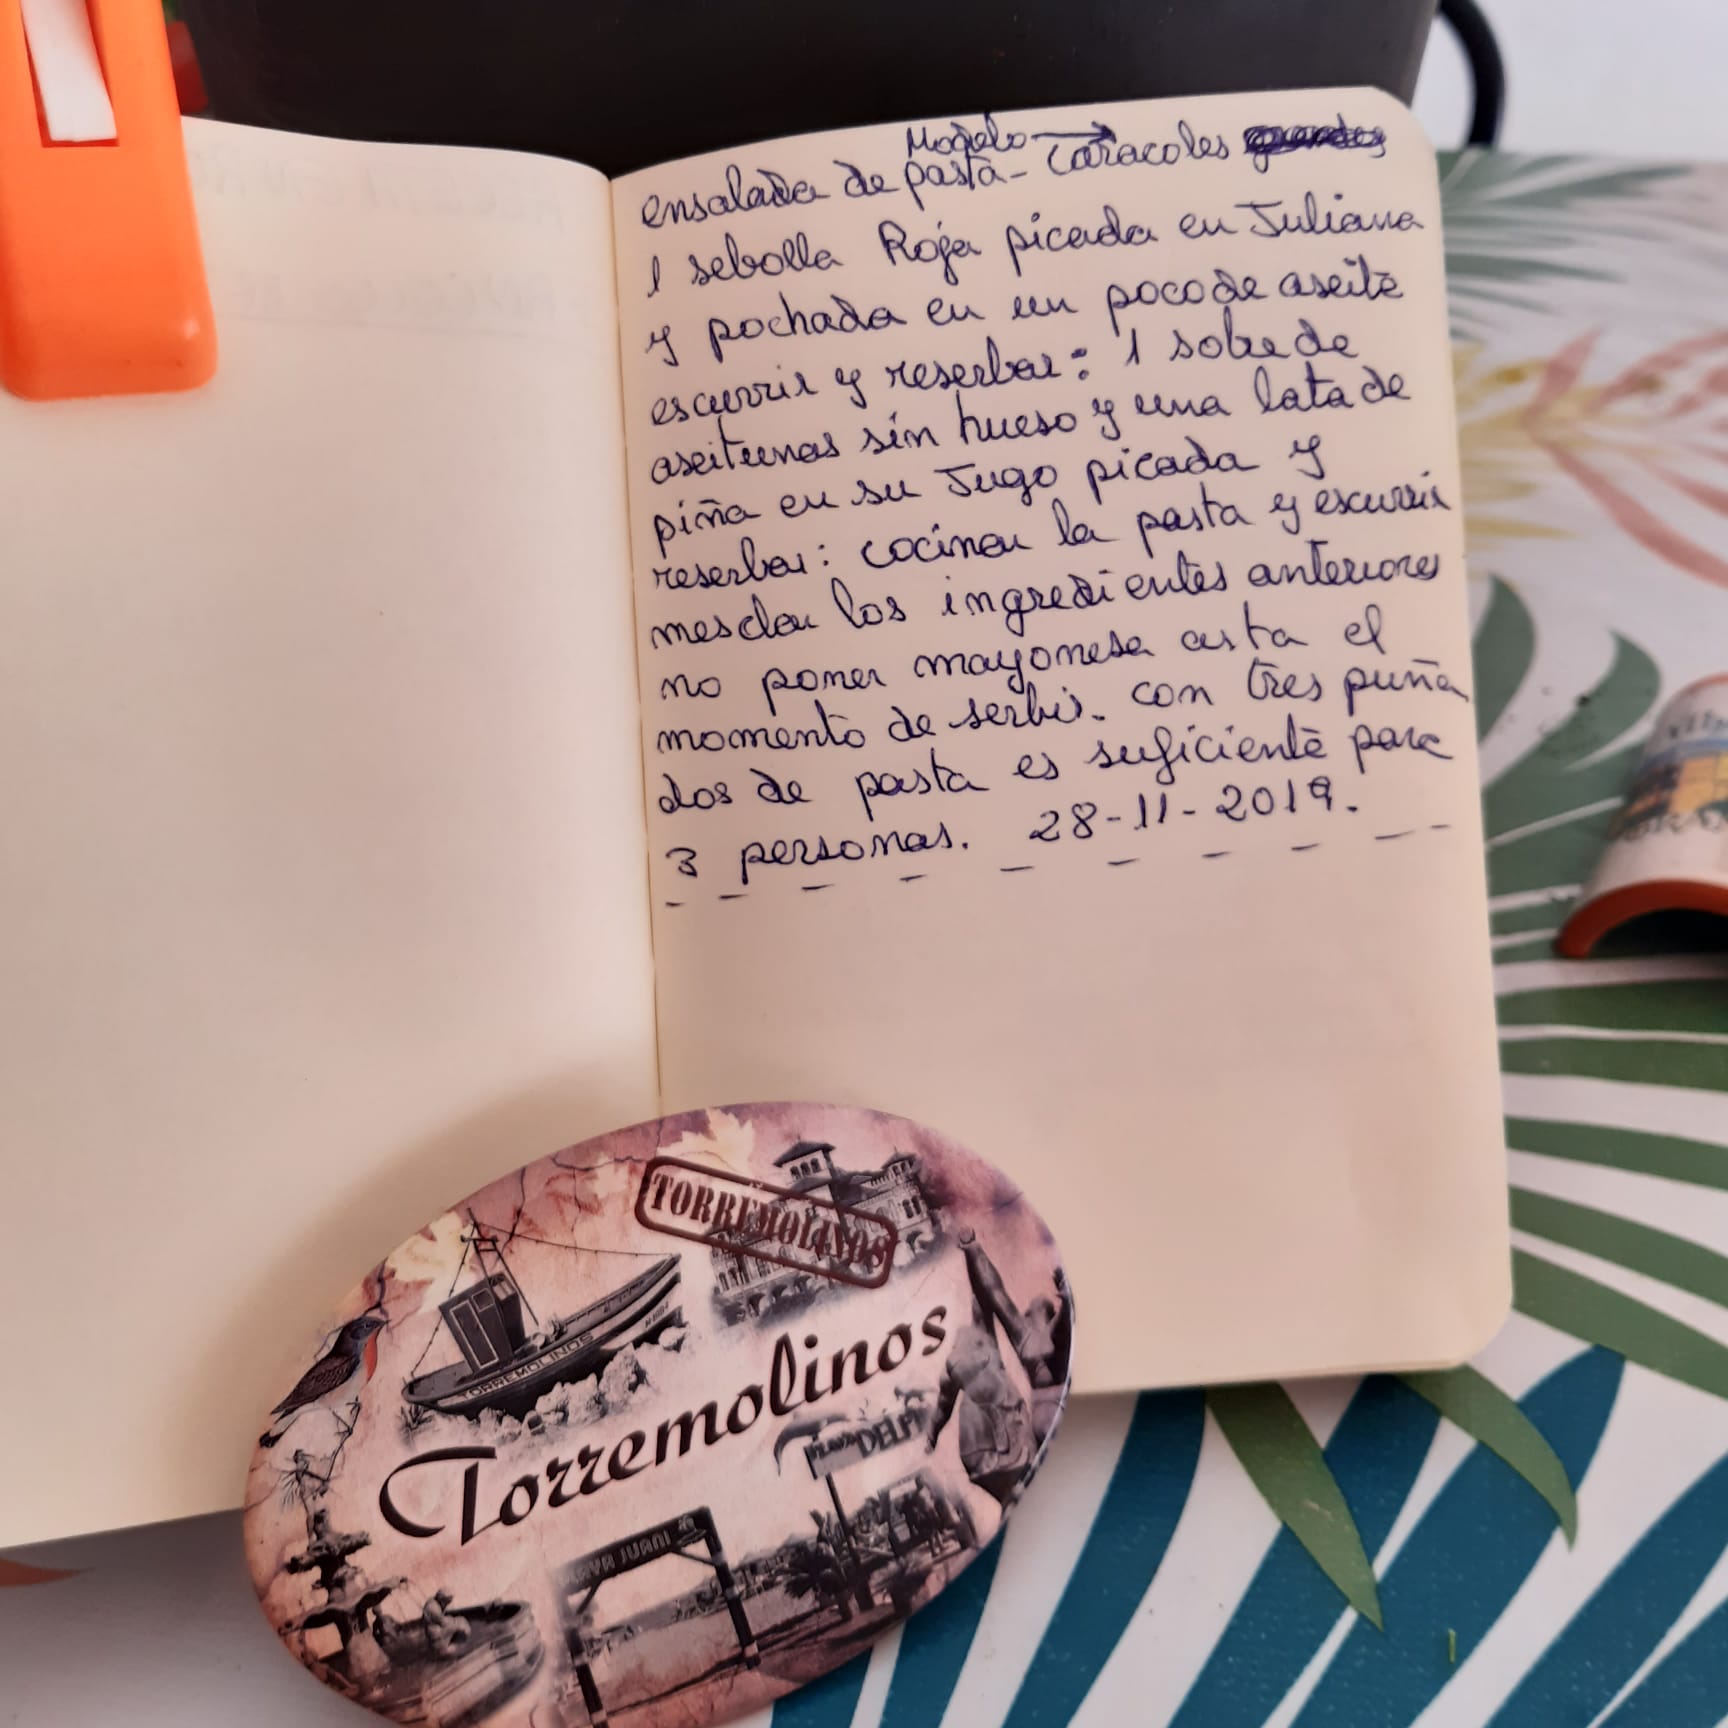 Modelo
ensalada de pasta - caracoles
1 sebolla Roja picada en Juliana
y pochada en un poco de aseite
escurrir y reserbar: 1 sobre de
aseitunas sin hueso y una lata de
piña en su Jugo picada y
reserbar: cocinar la pasta y escurrir
mesclar los ingredientes anteriores
no poner mayonesa asta el
momento de serbir. con tres puña
dos de pasta es suficiente para
3 personas. 28-11-2019.
TORREMOLINOS
TORREMOLINOS
Torremolinos